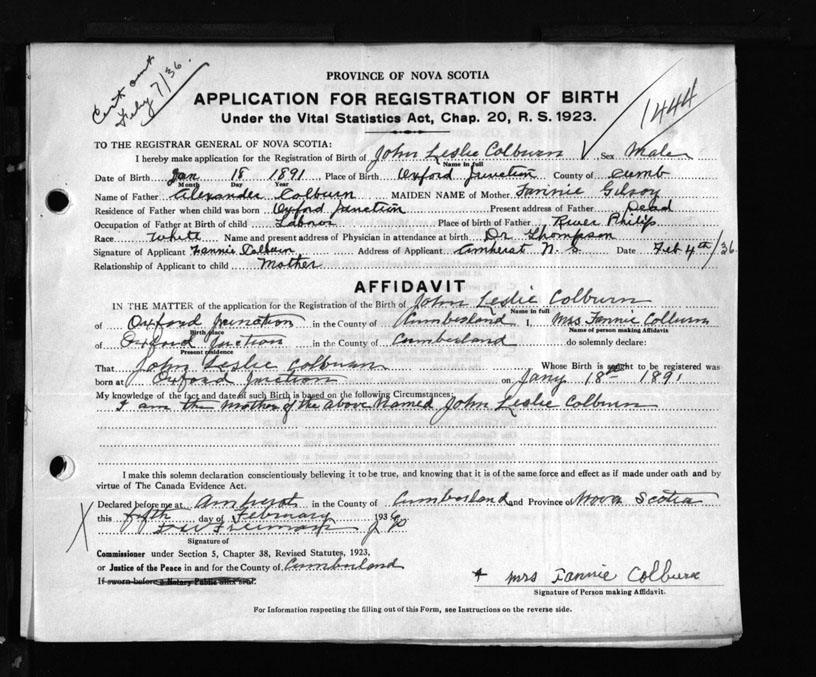 Cert sent
Feby 7/36.
PROVINCE OF NOVA SCOTIA
APPLICATION FOR REGISTRATION OF BIRTH
1444
Under the Vital Statistics Act, Chap. 20, R. S. 1923.
TO THE REGISTRAR GENERAL OF NOVA SCOTIA:
I hereby make application for the Registration of Birth of John Leslie Colburn , Sex Male
Name in full
Date of Birth Jan 18 1891 Place of Birth Oxford Junction County of Cumb
Month Day Year
Name of Father Alexander Colburn MAIDEN NAME of Mother Fannie Gilroy
Residence of Father when child was born Oxford Junction Present address of Father Dead
Occupation of Father at Birth of child Labnor Place of birth of Father River Philip
Race White Name and present address of Physician in attendance at birth Dr Thompson
Signature of Applicant Fannie Colburn Address of Applicant Amherst N. S. Date Feb 4th/36.
Relationship of Applicant to child Mother
AFFIDAVIT
IN THE MATTER of the application for the Registration of the Birth of John Leslie Colburn
Name in full
of Oxford Junction in the County of Cumberland I, Mrs Fannie Colburn
Birth place Name of person making Affidavit
of Oxford Junction in the County of Cumberland do solemnly declare:
Present residence
That John Leslie Colburn Whose Birth is sought to be registered was
born at Oxford Junction on Jany 18th 1891
My knowledge of the fact and date of such Birth is based on the following Circumstances:
I am the Mother of the above named John Leslie Colburn
I make this solemn declaration conscientiously believing it to be true, and knowing that it is of the same force and effect as if made under oath and by
virtue of The Canada Evidence Act.
Declared before me at Amherst in the County of Cumberland and Province of Nova Scotia
this fifth day of February 1936
Signature of
Commissioner under Section 5, Chapter 38, Revised Statutes, 1923,
or Justice of the Peace in and for the County of Cumberland
If sworn before a Notary Public affix seal.
+ Mrs Fannie Colburn
Signature of Person making Affidavit.
For Information respecting the filling out of this Form, see Instructions on the reverse side.